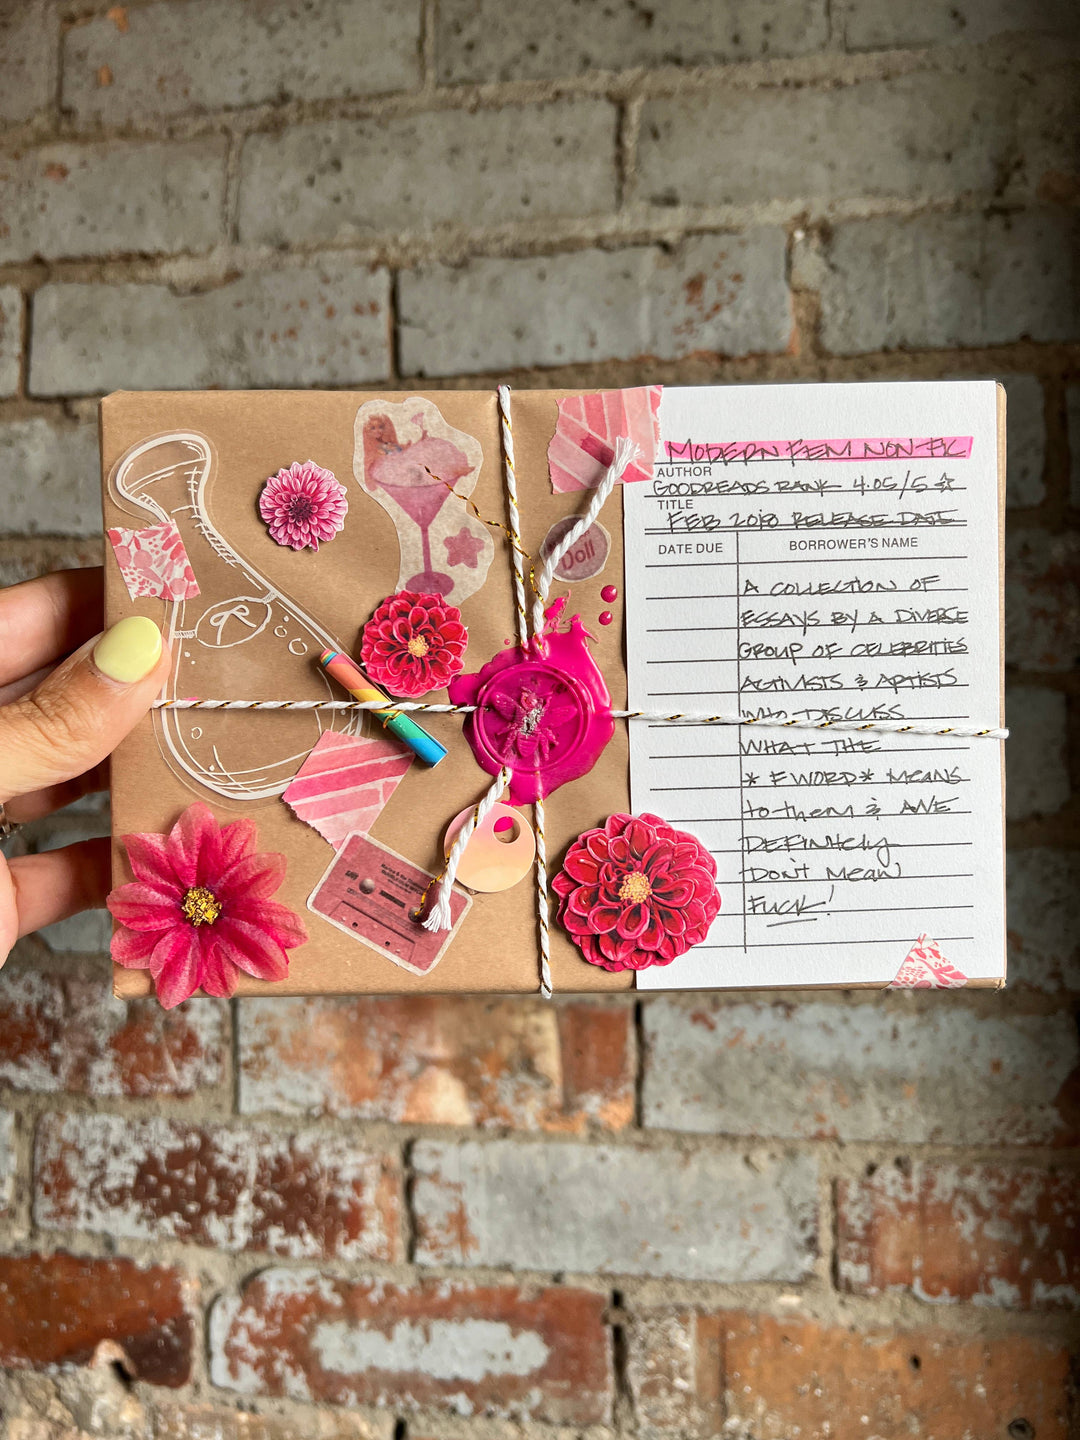 MODERN FEM NON FIC
AUTHOR
GOODREADS RANK 4.05/5 ☆
TITLE
FEB 2020 RELEASE DATE
DATE DUE
BORROWER'S NAME
A COLLECTION OF
ESSAYS BY A DIVERSE
GROUP OF CELEBRITIES
ACTIVISTS & ARTISTS
WHO DISCUSS
WHAT THE
*F WORD* MEANS
to them & ARE
DEFINITELY
Don't mean
FUCK!
Doll